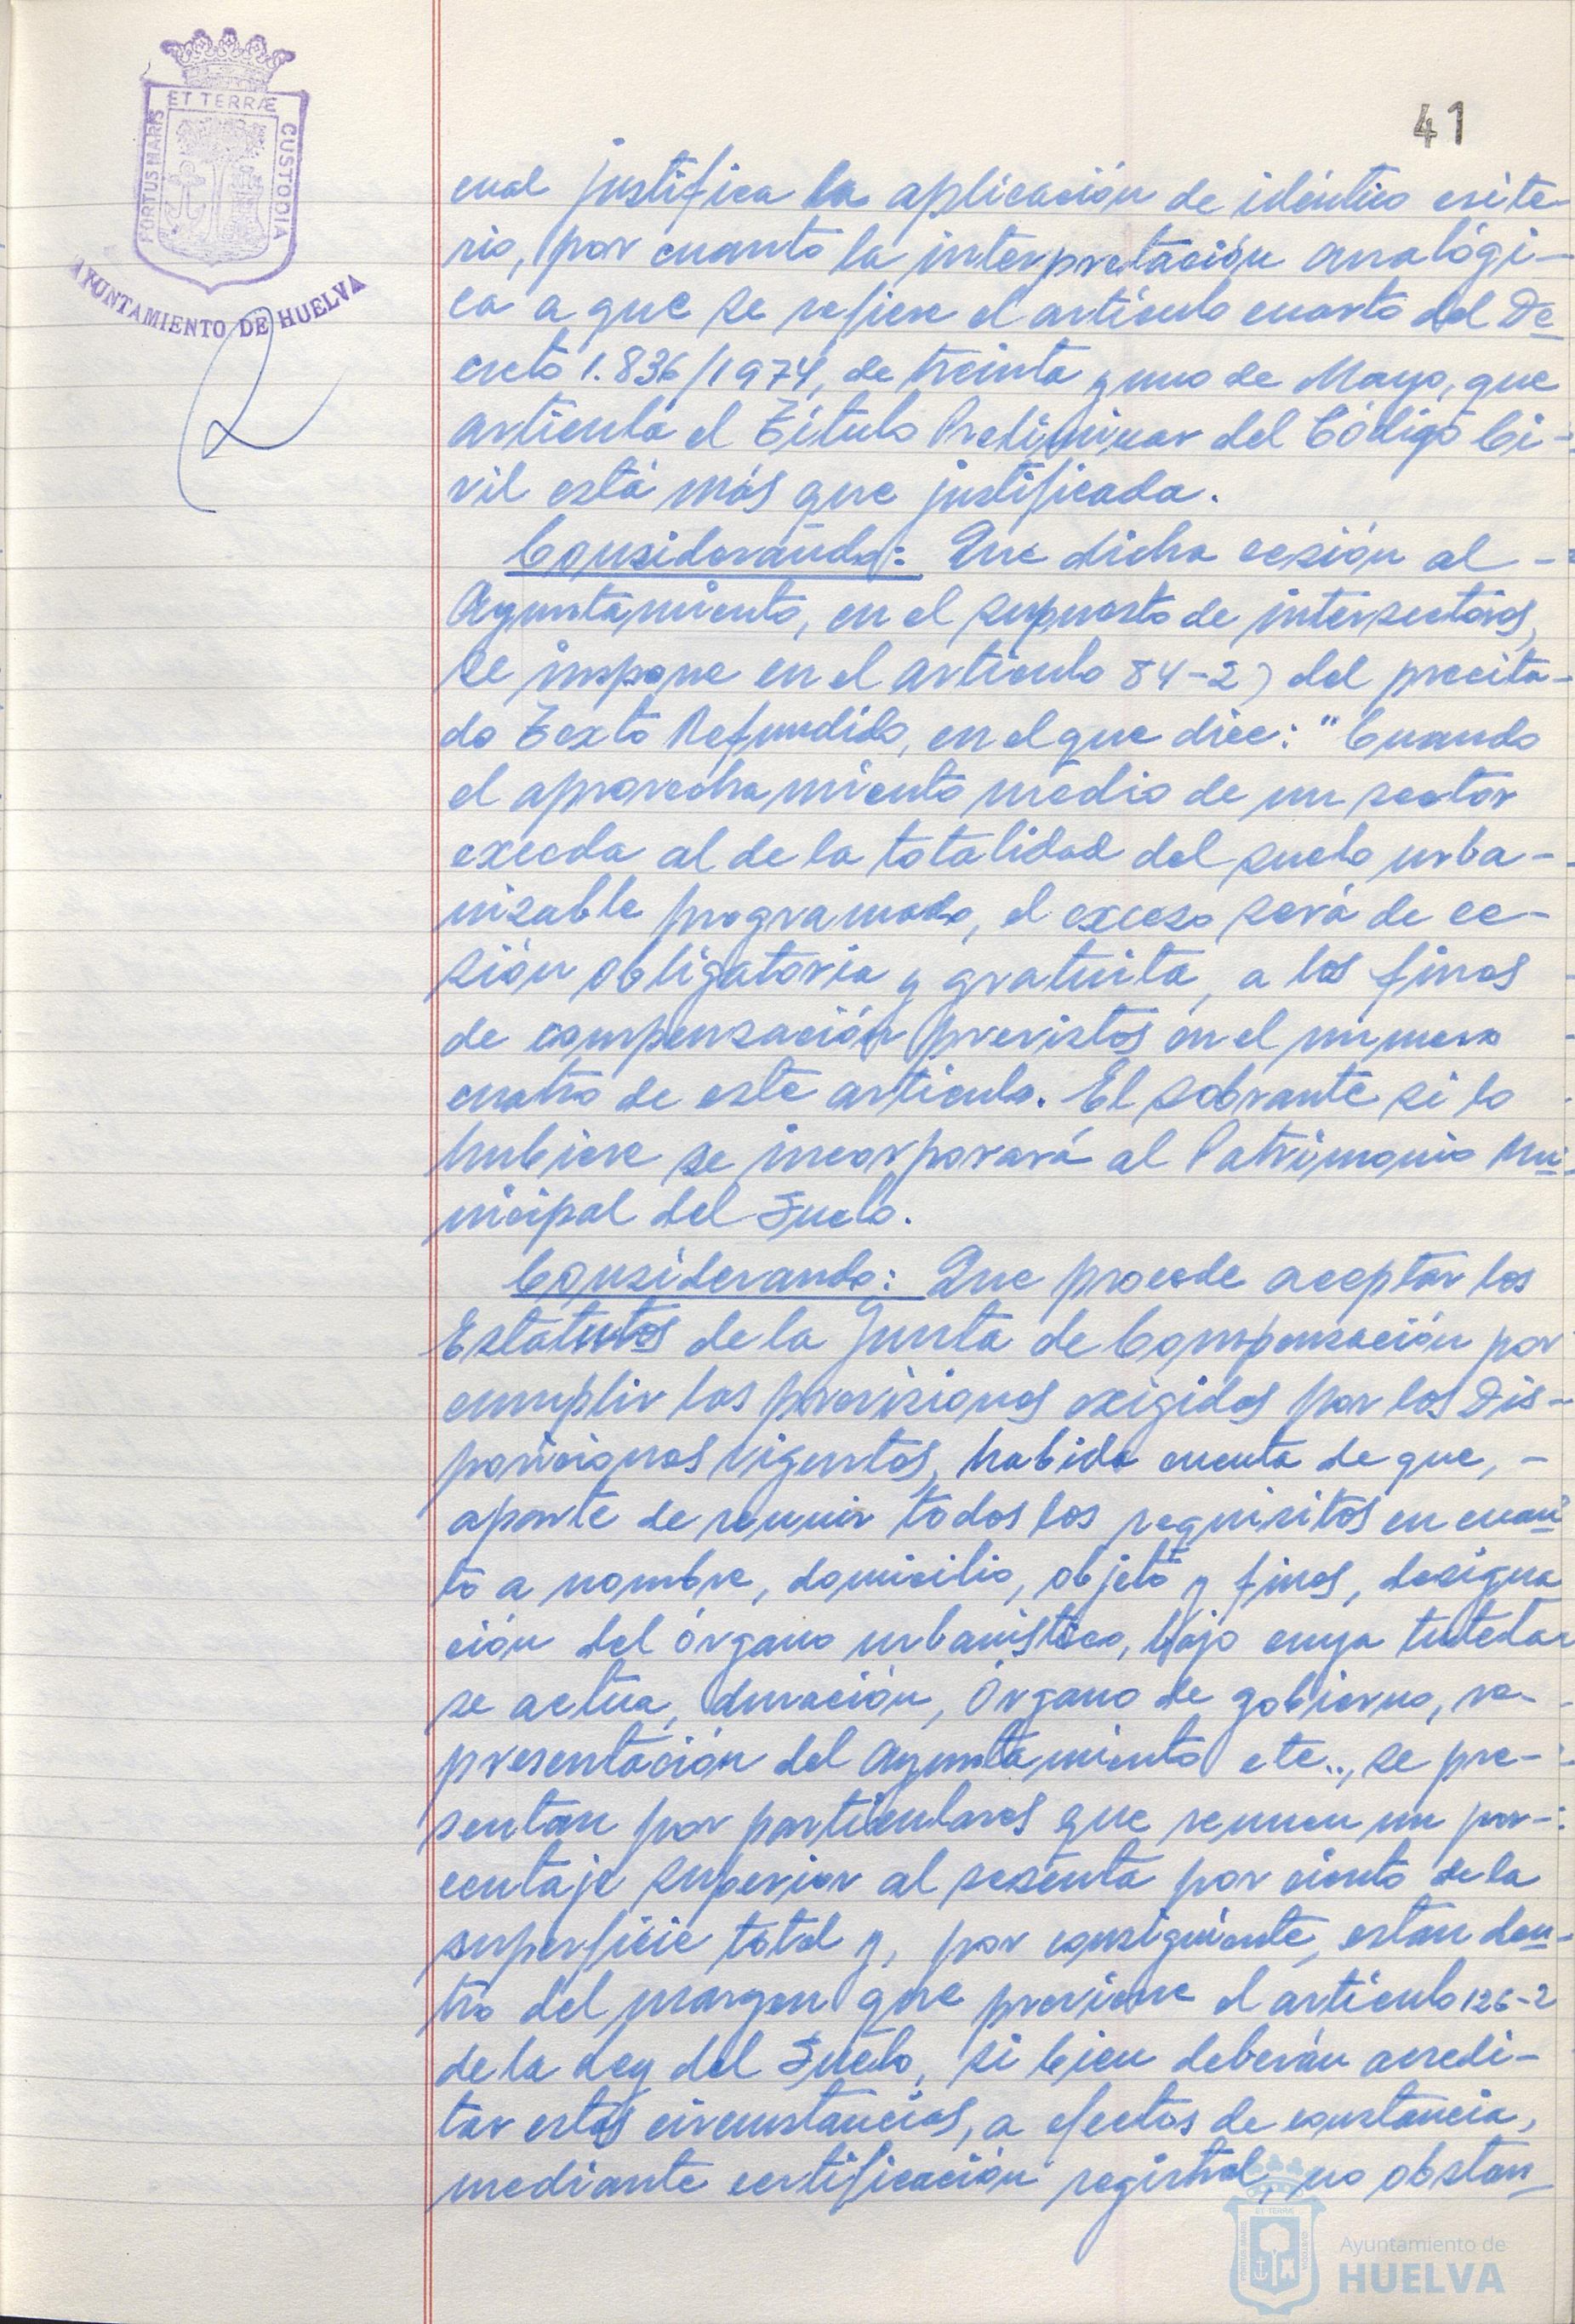 ET TERRÆ
PORTUS MARIS
CUSTODIA
AYUNTAMIENTO DE HUELVA
41
cual justifica la aplicación de idéntico crite-
rio, por cuanto la interpretación analógi-
ca a que se refiere el artículo cuarto del De
creto 1.836/1974, de treinta y uno de Mayo, que
articula el Título Preliminar del Código Ci-
vil está más que justificada.
Considerando: Que dicha cesión al -
Ayuntamiento, en el supuesto de intersectores,
se impone en el artículo 84-2) del precita-
do Texto Refundido, en el que dice: "Cuando
el aprovechamiento medio de un sector
exceda al de la totalidad del suelo urba-
nizable programado, el exceso será de ce-
sión obligatoria y gratuita, a los fines
de compensación previstos en el numero
cuatro de este artículo. El sobrante si lo
hubiere se incorporará al Patrimonio Mu
nicipal del Suelo.
Considerando: Que procede aceptar los
Estatutos de la Junta de Compensación por
cumplir las previsiones exigidas por los Dis-
posiciones vigentes, habida cuenta de que, -
aparte de reunir todos los requisitos en cuan
to a nombre, domicilio, objeto y fines, designa
ción del órgano urbanístico, bajo cuya tutela
se actua, duración, Órgano de gobierno, re-
presentación del Ayuntamiento etc.., se pre-
sentan por particulares que reunen un por-
centaje superior al sesenta por ciento de la
superficie total y, por consiguiente, estan den-
tro del margen que previene el artículo 126-2
de la Ley del Suelo, si bien deberán acredi-
tar estas circunstancias, a efectos de constancia,
mediante certificación registral, no obstan
Ayuntamiento de
HUELVA